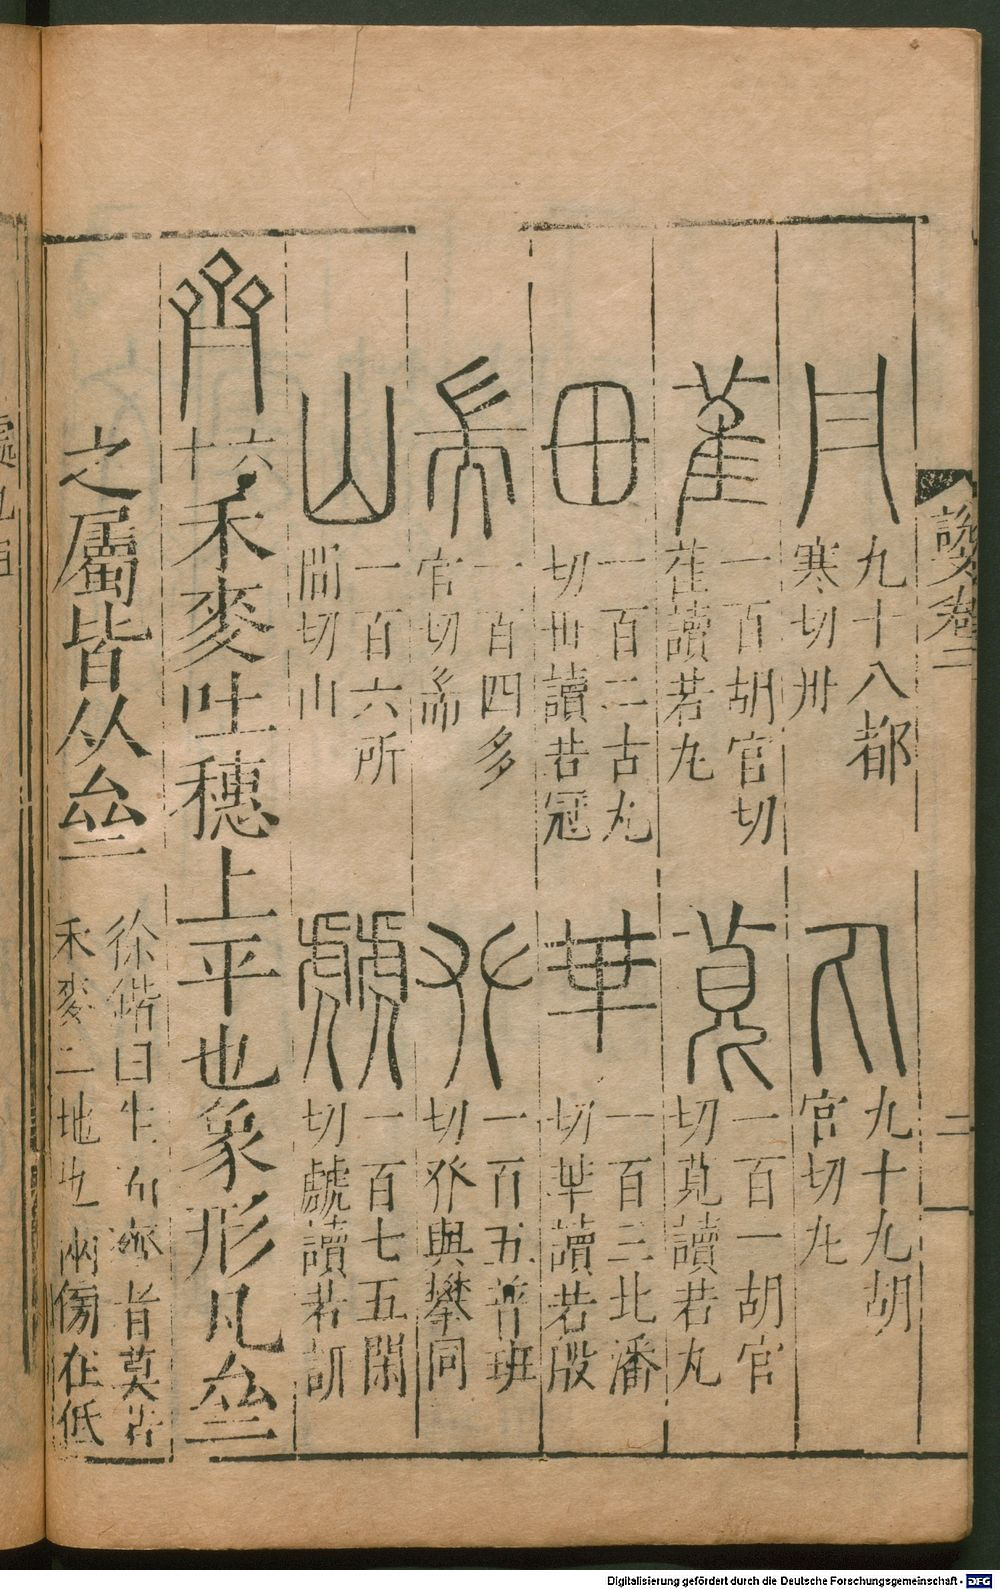 九十八都
寒切丹
九十九胡
官切丸
一百胡官切
萑讀若丸
一百一胡官
切萈讀若丸
一百二古丸
切毌讀若冠
一百三北潘
切𠦒讀若般
一百四多
官切耑
一百五普班
切𠬜與攀同
一百六所
間切山
一百七五閑
切虤讀若訮
十六
禾麥吐穗上平也象形凡亝
之屬皆从亝
徐鍇曰生而齊者莫若
禾麥二地也兩傍在低
說文卷二
二
Digitalisierung gefördert durch die Deutsche Forschungsgemeinschaft - DFG